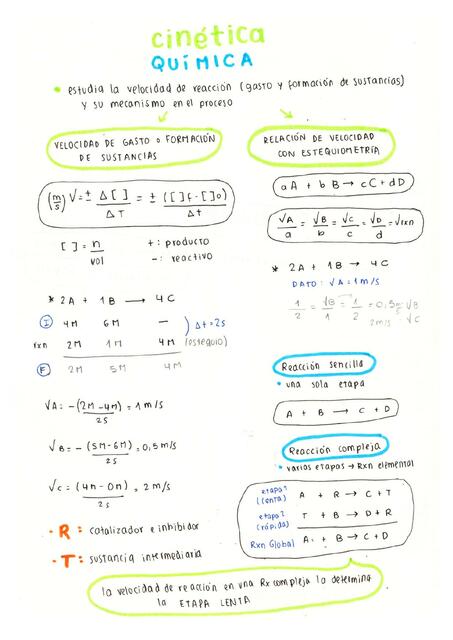 cinética
QUÍMICA
• estudia la velocidad de reacción (gasto y formación de sustancias)
y su mecanismo en el proceso
VELOCIDAD DE GASTO o FORMACIÓN
DE SUSTANCIAS
(m/s) V = ± Δ[ ] / ΔT = ± ([ ]f - [ ]o) / Δt
[ ] = n / vol
+ : producto
- : reactivo
* 2A + 1B → 4C
I 4M 6M —
rxn 2M 1M 4M (estequio)
Δt = 2s
F 2M 5M 4M
VA = -(2M-4M) / 2s = 1 m/s
VB = -(5M-6M) / 2s = 0,5 m/s
VC = (4M-0M) / 2s = 2 m/s
- R : catalizador e inhibidor
- T : sustancia intermediaria
RELACIÓN DE VELOCIDAD
CON ESTEQUIOMETRÍA
aA + bB → cC + dD
VA / a = VB / b = VC / c = VD / d = Vrxn
* 2A + 1B → 4C
DATO : VA = 1 m/s
1 / 2 = VB / 1 = 1 / 2 = 0,5 m/s VB
2m/s VC
Reacción sencilla
• una sola etapa
A + B → C + D
Reacción compleja
• varias etapas → Rxn elemental
etapa 1 (lenta) A + R → C + T
etapa 2 (rápida) T + B → D + R
Rxn Global A + B → C + D
la velocidad de reacción en una Rx compleja la determina
la ETAPA LENTA